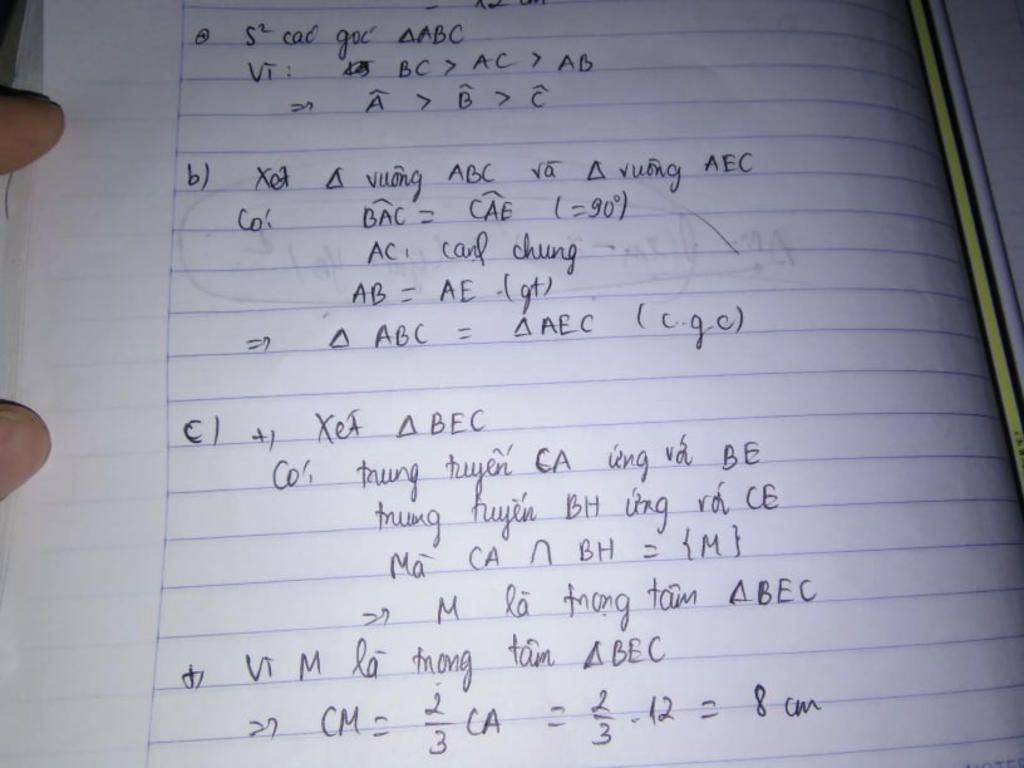 ⊕ S² các góc ΔABC
Vì: BC > AC > AB
=> Â > B̂ > Ĉ
b) Xét Δ vuông ABC và Δ vuông AEC
Có: BÂC = CÂE (=90°)
AC: cạnh chung
AB = AE (gt)
=> Δ ABC = ΔAEC (c.g.c)
c) +, Xét ΔBEC
Có: trung tuyến CA ứng với BE
trung tuyến BH ứng với CE
Mà CA ∩ BH = {M}
=> M là trọng tâm ΔBEC
+, Vì M là trọng tâm ΔBEC
=> CM = 2/3 CA = 2/3 . 12 = 8 cm